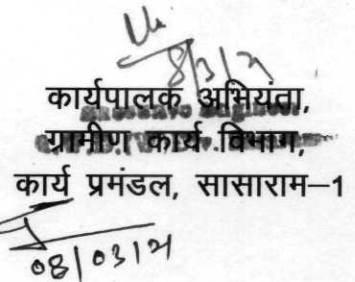 8/3/21
कार्यपालक अभियंता,
ग्रामीण कार्य विभाग,
कार्य प्रमंडल, सासाराम–1
08/03/21